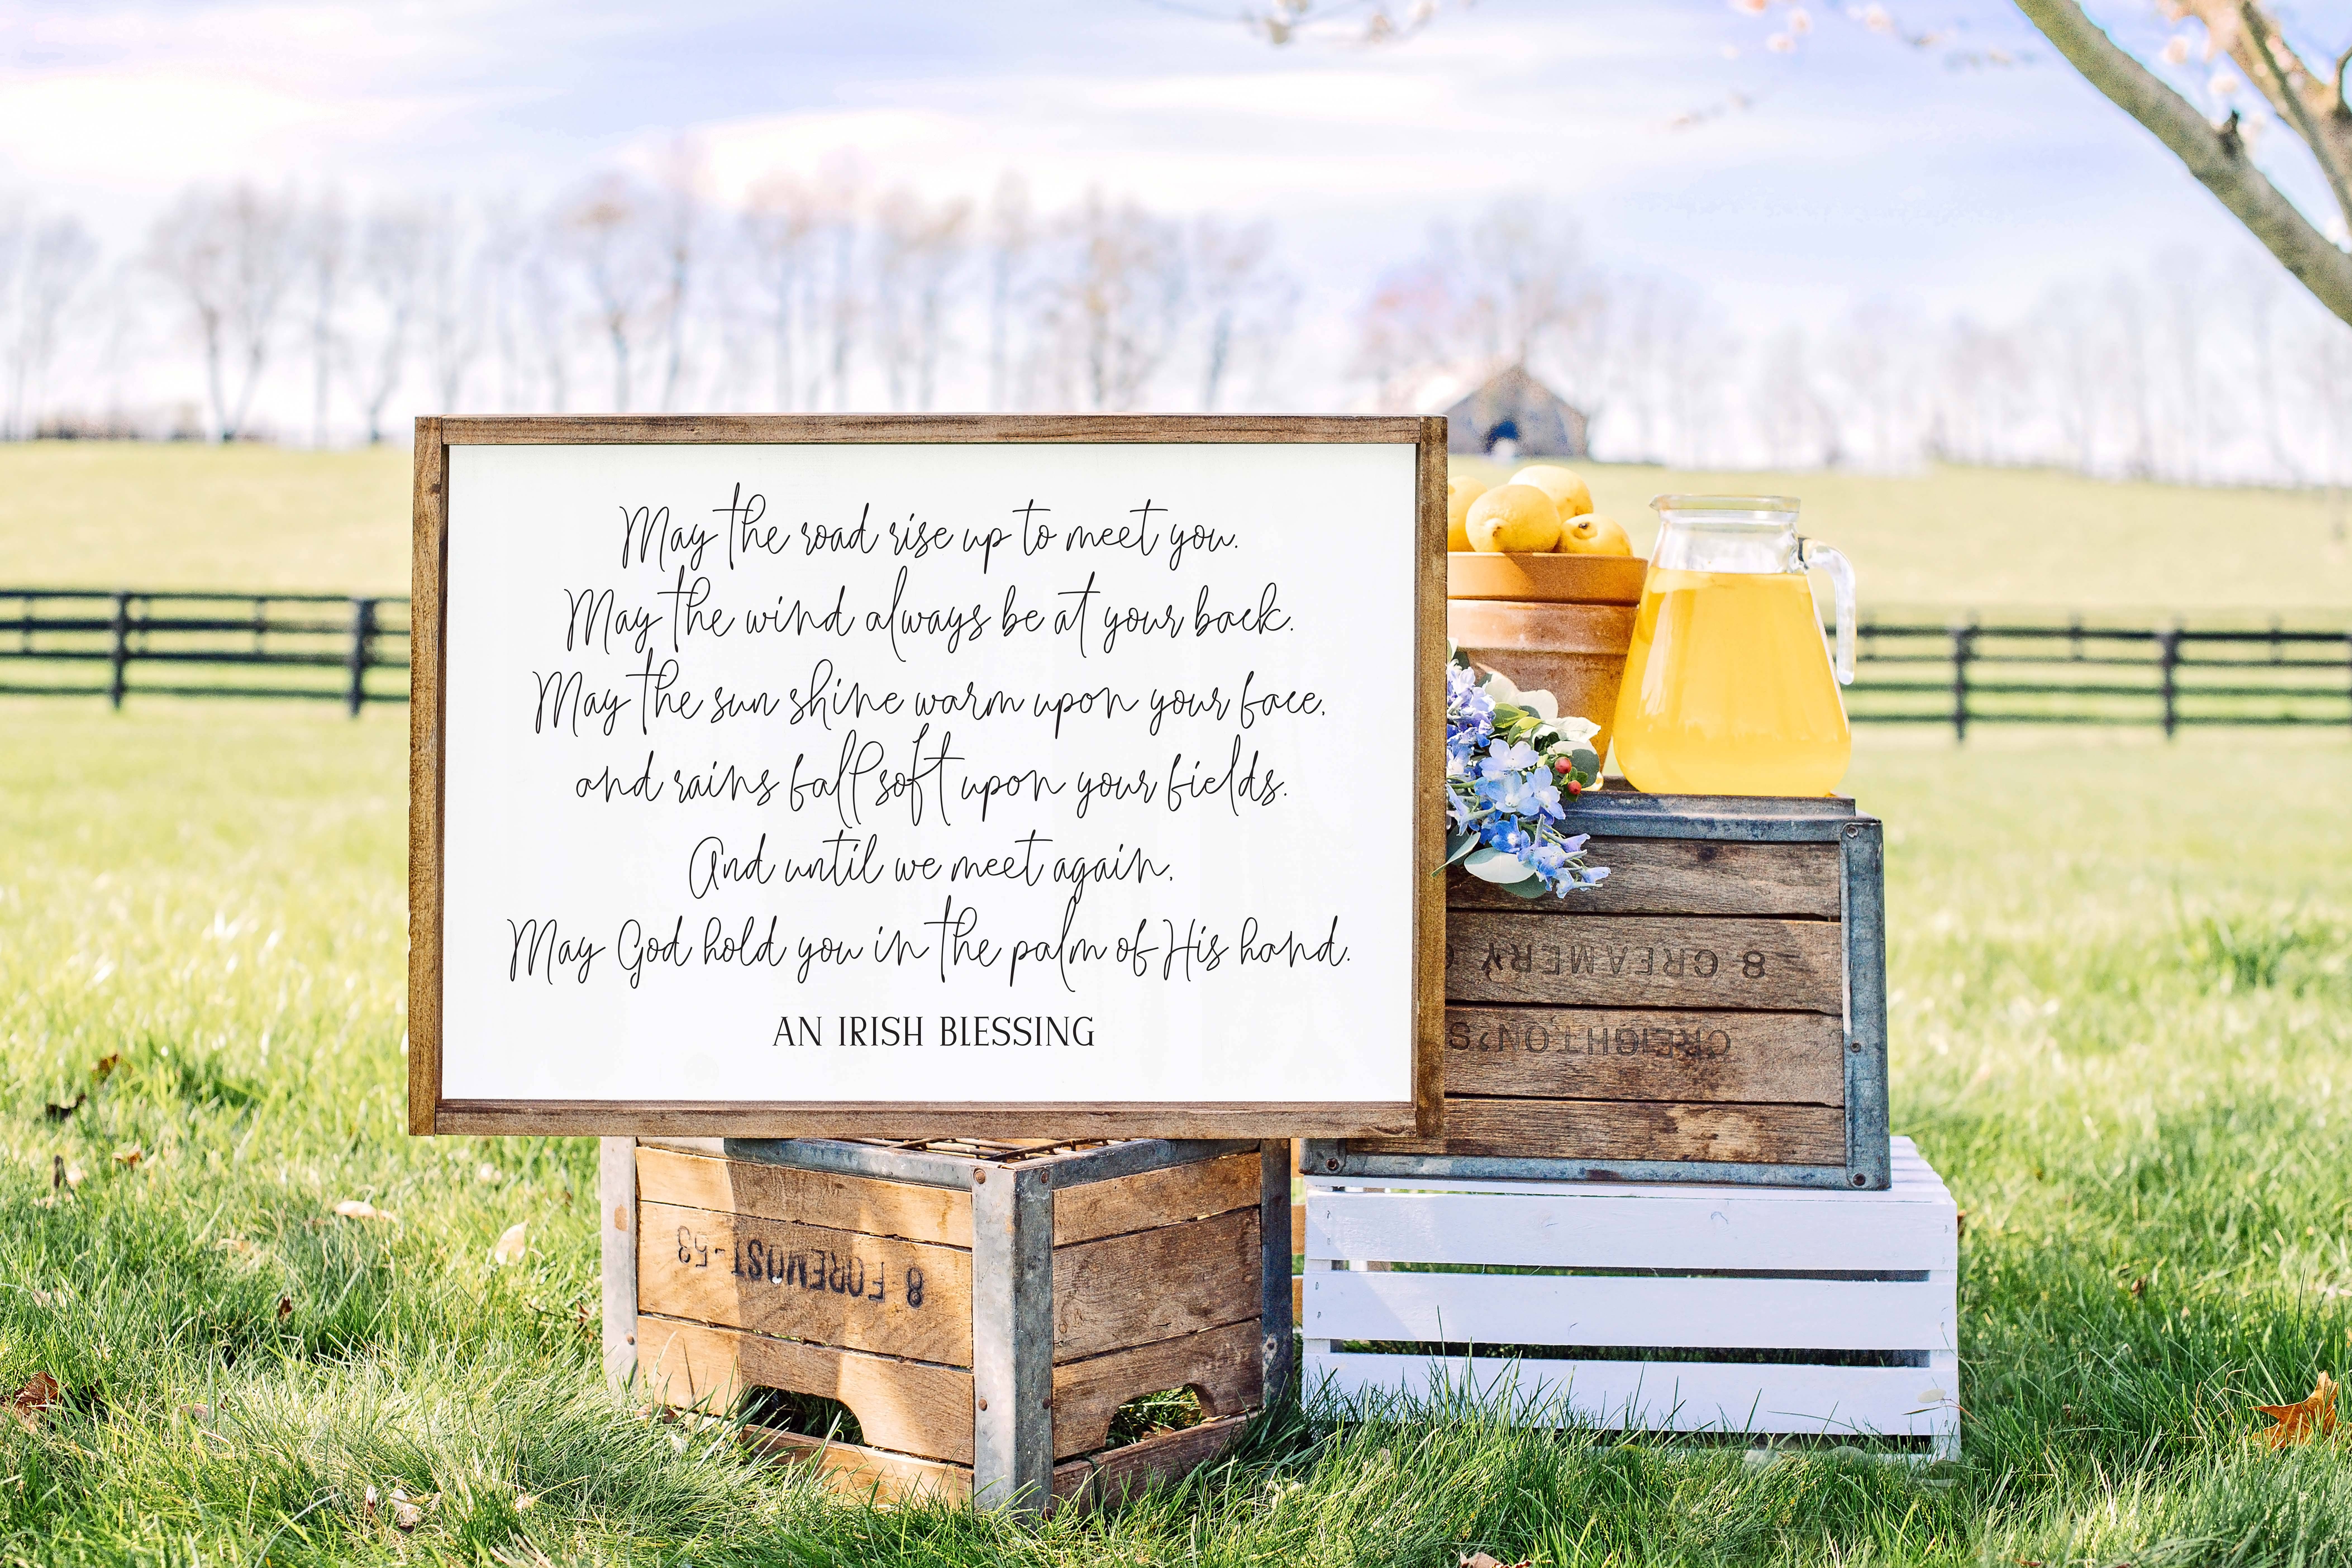 May the road rise up to meet you.
May the wind always be at your back.
May the sun shine warm upon your face,
and rains fall soft upon your fields.
And until we meet again,
May God hold you in the palm of His hand.
AN IRISH BLESSING
8 CREAMERY
CREIGHTON'S
8 FOREMOST-53